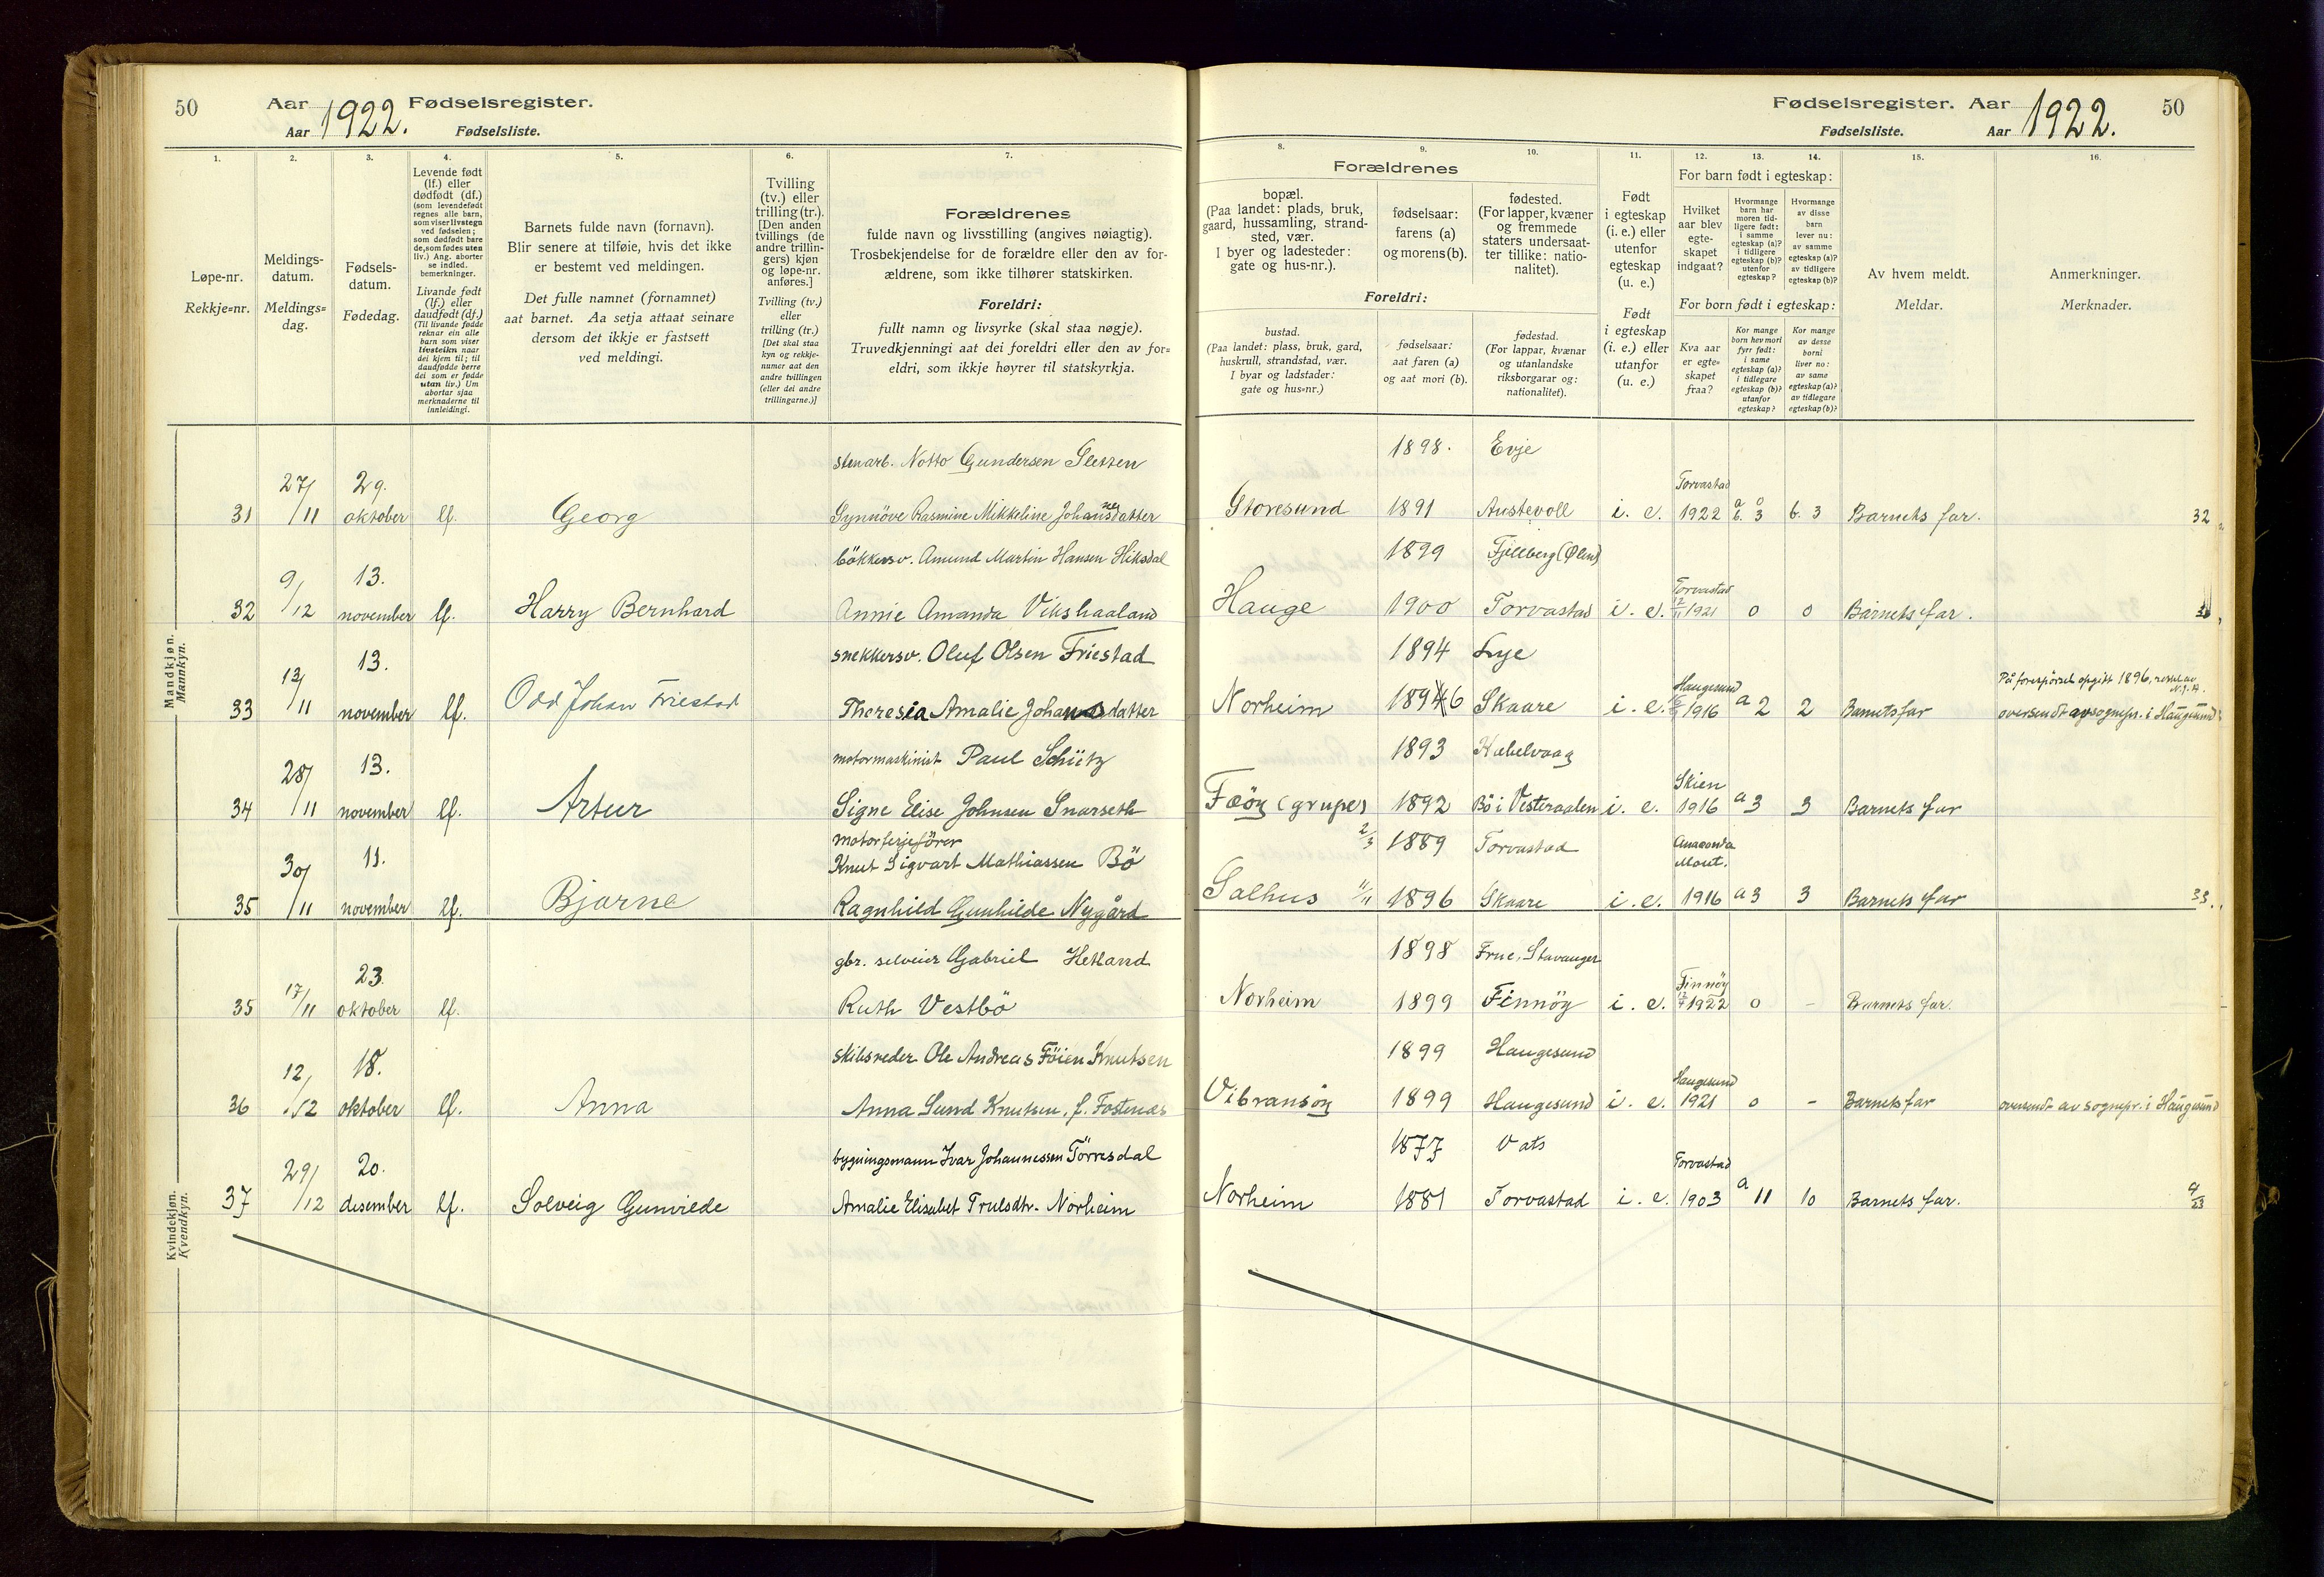 50 Aar 1922. Fødselsregister.
Aar Fødselsliste.
1. 2. 3. 4. 5. 6. 7.
Løpe-nr.
Rekkje=nr.
Meldings-
datum.
Meldings=
dag.
Fødsels-
datum.
Fødedag.
Levende født
(lf.) eller
dødfødt (df.)
(som levendefødt
regnes alle barn,
som viser livstegn
ved fødselen;
som dødfødt bare
de, som fødes uten
liv.) Ang. aborter
se indled.
bemerkninger.
Livande født
(lf.) eller
daudfødt (df.)
(Til livande fødde
reknar ein alle
barn som viser
livsteikn naar
dei kjem til; til
daudfødde berre
dei som er fødde
utan liv.) Um
abortar sjaa
merknaderne til
innleidingi.
Barnets fulde navn (fornavn).
Blir senere at tilføie, hvis det ikke
er bestemt ved meldingen.
Det fulle namnet (fornamnet)
aat barnet. Aa setja attaat seinare
dersom det ikkje er fastsett
ved meldingi.
Tvilling
(tv.) eller
trilling (tr.).
[Den anden
tvillings (de
andre trillin-
gers) kjøn
og løpe-nr.
anføres.]
Tvilling (tv.)
eller
trilling (tr.)
[Det skal staa
kyn og rekkje-
numer aat den
andre tvillingen
(eller dei andre
trillingarne.)]
Forældrenes
fulde navn og livsstilling (angives nøiagtig).
Trosbekjendelse for de forældre eller den av for-
ældrene, som ikke tilhører statskirken.
Foreldri:
fullt namn og livsyrke (skal staa nøgje).
Truvedkjenningi aat dei foreldri eller den av for=
eldri, som ikkje høyrer til statskyrkja.
Mandkjøn.
Mannkyn.
stenarb. Notto Gundersen Sletten
31 27/11 29. oktober lf. Georg Synnöve Rasmine Mikkeline Johannesdatter
bökkersv. Amund Martin Hansen Hiksdal
32 9/12 13. november lf. Harry Bernhard Annie Amanda Vikshaaland
snekkersv. Oluf Olsen Friestad
33 13/11 13. november lf. Odd Johan Friestad Theresia Amalie Johansdatter
motormaskinist Paul Schütz
34 28/11 13. november lf. Artur Signe Elise Johnsen Snarseth
motorferjefören
Knut Sigvart Mathiassen Bö
35 30/11 11. november lf. Bjarne Ragnhild Gunhilde Nygård
Kvindekjøn.
Kvendkyn.
gbr. selveier Gabriel Hetland
35 17/11 23. oktober lf. Ruth Vestbö
skibsreder Ole Andreas Föien Knutsen
36 12/12 18. oktober lf. Anna Anna Sund Knutsen, f. Fostenæs
bygningsmann Ivar Johannessen Törresdal
37 29/12 20. desember lf. Solveig Gunvilde Amalie Elisabet Trulsdtr. Norheim
Fødselsregister. Aar 1922. 50
Fødselsliste. Aar
8. 9. 10. 11. 12. 13. 14. 15. 16.
Forældrenes
bopæl.
(Paa landet: plads, bruk,
gaard, hussamling, strand-
sted, vær.
I byer og ladesteder:
gate og hus-nr.).
fødselsaar:
farens (a)
og morens (b).
fødested.
(For lapper, kvæner
og fremmede
staters undersaat-
ter tillike: natio-
nalitet).
Foreldri:
bustad.
(Paa landet: plass, bruk, gard,
huskrull, strandstad, vær.
I byar og ladstader:
gate og hus=nr.)
fødselsaar:
aat faren (a)
og aat mori (b).
fødestad.
(For lappar, kvænar
og utanlandske
riksborgarar og:
nationalitet).
Født
i egteskap
(i. e.) eller
utenfor
egteskap
(u. e.)
Født
i egteskap
(i. e.) eller
utanfor
egteskap
(u. e.)
For barn født i egteskap:
Hvilket
aar blev
egte-
skapet
indgaat?
Hvormange
barn har
moren tid-
ligere født:
i samme
egteskap (a)?
i tidligere
egteskap (b)?
utenfor
egteskap?
Hvormange
av disse
barn
lever nu:
av samme
egteskap (a)?
av tidligere
egteskap (b)?
For born født i egteskap:
Kva aar
er egte-
skapet
fraa?
Kor mange
born hev mori
fyrr født:
i same
egteskap (a)?
i tidlegare
egteskap (b)?
utanfor
egteskap?
Kor mange
av desse
borni
liver no:
av same
egteskap (a)?
av tidlegare
egteskap (b)?
Av hvem meldt.
Meldar.
Anmerkninger.
Merknader.
1898. Evje
Storesund 1891 Austevoll i. e. Torvastad 1922 a 0 b. 3 b. 3 Barnets far. 32
1899 Fjellberg (Ølen)
Hauge 1900 Torvastad i. e. Torvastad 12/11 1921 0 0 Barnets far.
1894 Lye
Norheim 1894 6 Skaare i. e. Haugesund 1916 a 2 2 Barnets far På forespörsel opgitt 1896, rettet av N. J. H.
oversendt av sognepr. i Haugesund
1893 Kabelvaag
Fæöy (grupe) 1892 Bö i Vesteraalen i. e. Skien 1916 a 3 3 Barnets far
2/3 1889 Torvastad
Salhus 11/11 1896 Skaare i. e. Anaconda Mont. 1916 a 3 3 Barnets far 33.
1898 Frue, Stavanger
Norheim 1899 Finnöy i. e. Finnöy 1922 0 - Barnets far.
1899 Haugesund
Vibransöy 1899 Haugesund i. e. Haugesund 1921 0 - Barnets far oversendt av sognepr. i Haugesund
1877 Vats
Norheim 1881 Torvastad i. e. Torvastad 1903 a 11 10 Barnets far. 4/23